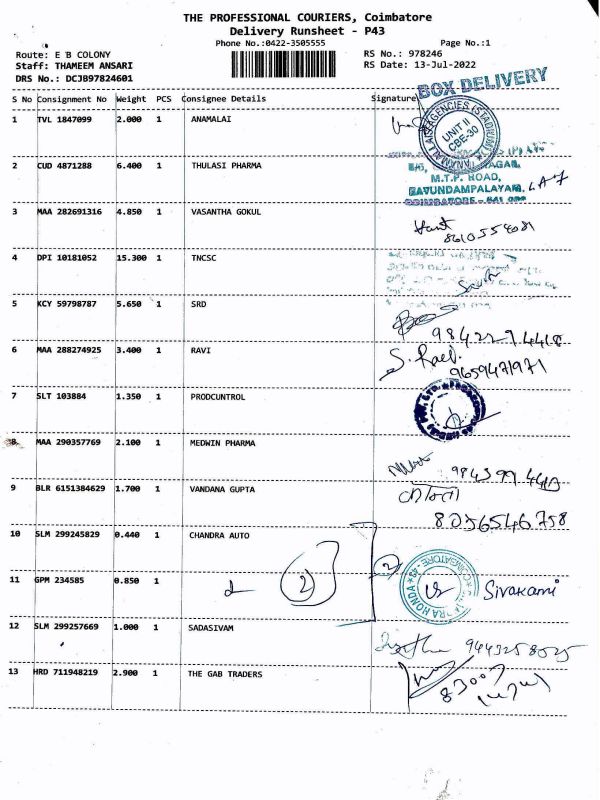 THE PROFESSIONAL COURIERS, Coimbatore
Delivery Runsheet - P43
Phone No.:0422-3505555
Page No.:1
Route: E B COLONY
RS No.: 978246
Staff: THAMEEM ANSARI
RS Date: 13-Jul-2022
DRS No.: DCJB97824601
BOX DELIVERY
S No Consignment No Weight PCS Consignee Details Signature
1 TVL 1847099 2.000 1 ANAMALAI
UNIT II
CBE-30
2 CUD 4871288 6.400 1 THULASI PHARMA
M.T.P. ROAD,
GAVUNDAMPALAYAM,
COIMBATORE - 641 030
3 MAA 282691316 4.850 1 VASANTHA GOKUL
8610554081
4 DPI 10181052 15.300 1 TNCSC
5 KCY 59798787 5.650 1 SRD
6 MAA 288274925 3.400 1 RAVI
9659471971
7 SLT 103884 1.350 1 PRODCUNTROL
8 MAA 290357769 2.100 1 MEDWIN PHARMA
9 BLR 6151384629 1.700 1 VANDANA GUPTA
8056546758
10 SLM 299245829 0.440 1 CHANDRA AUTO
11 GPM 234585 0.850 1 2 2 Sivakami
12 SLM 299257669 1.000 1 SADASIVAM
9443258025
13 HRD 711948219 2.900 1 THE GAB TRADERS